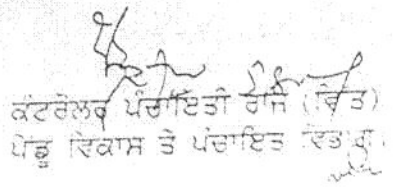 ਕੰਟਰੋਲਰ ਪੰਚਾਇਤੀ ਰਾਜ (ਵਿੱਤ)
ਪੇਂਡੂ ਵਿਕਾਸ ਤੇ ਪੰਚਾਇਤ ਵਿਭਾਗ,